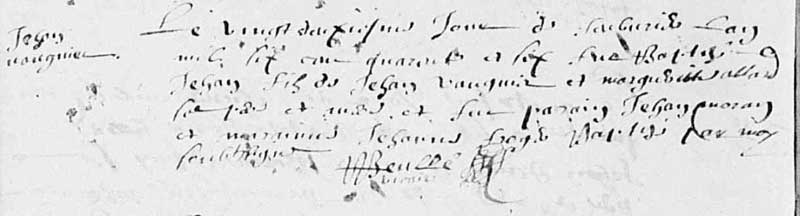 Jehan
vauquier
Le vingt deuxiesme Jour de Lan
mil six cen quarente et six fut Baptisé
Jehan filz de Jehan vauquier et marguerite allard
ses pere et et fut parain Jehan moran
et marainne Jehanne Baptisé Par moy
soubsigné